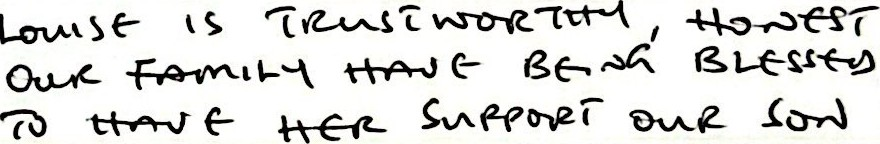 LOUISE IS TRUSTWORTHY, HONEST
OUR FAMILY HAVE BEING BLESSED
TO HAVE HER SUPPORT OUR SON